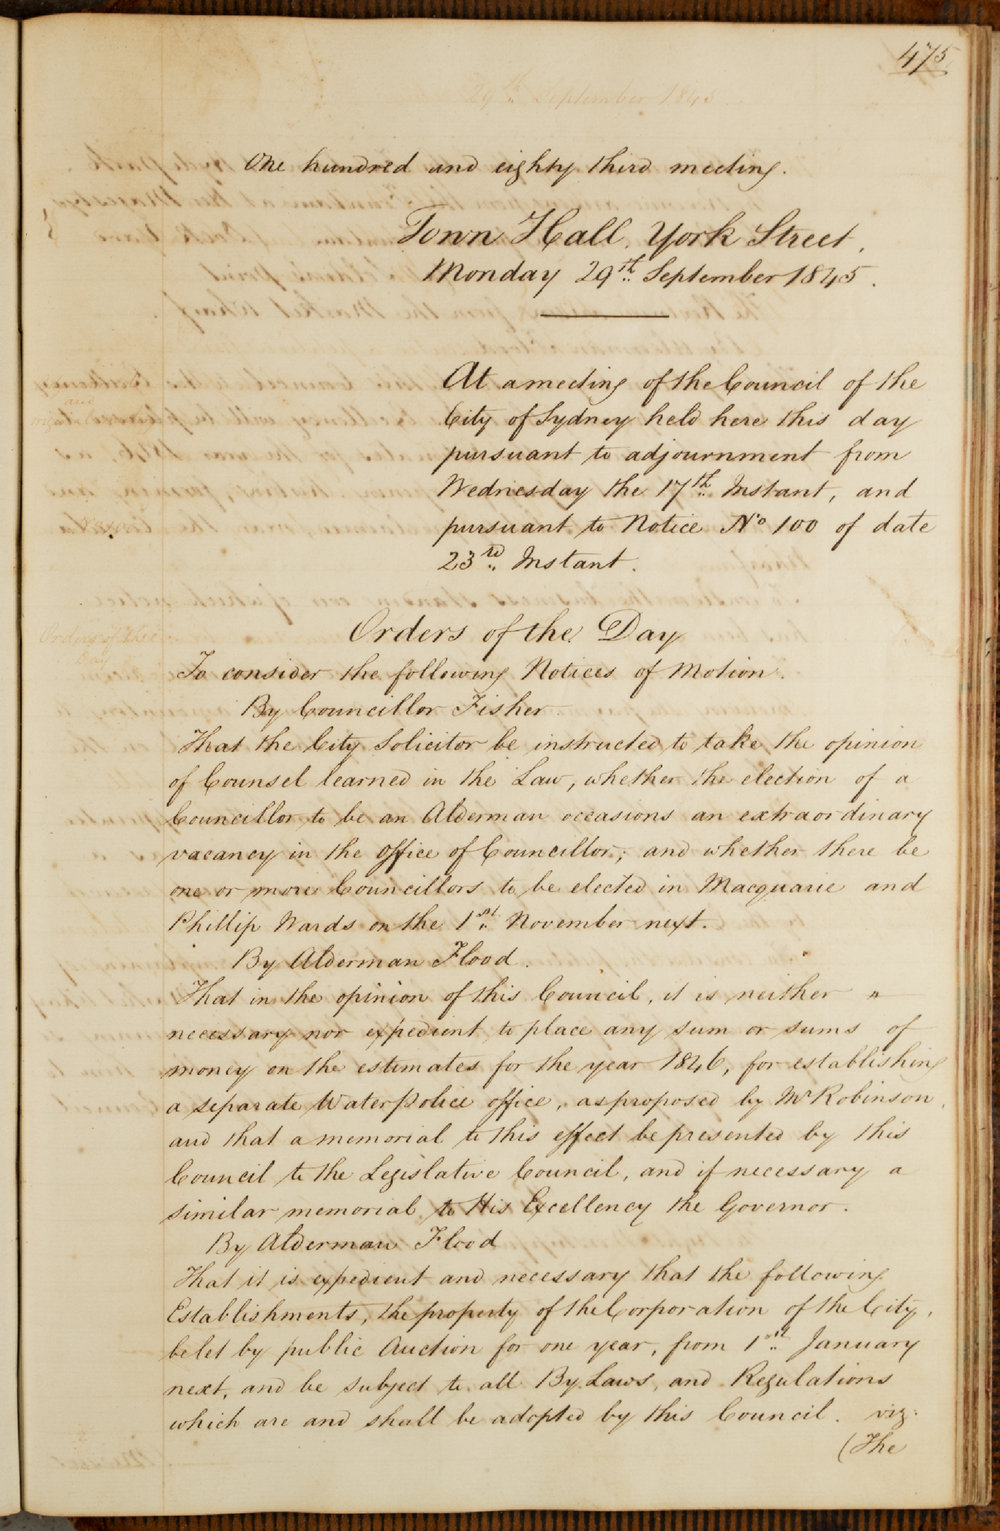 475
29th September 1845
One hundred and eighty third meeting.
Town Hall, York Street,
Monday 29th September 1845.
At a meeting of the Council of the
City of Sydney held here this day
pursuant to adjournment from
Wednesday the 17th Instant, and
pursuant to Notice No 100 of date
23rd Instant.
Orders of the Day
Orders of the Day
To consider the following Notices of Motion.
By Councillor Fisher
That the City Solicitor be instructed to take the opinion
of Counsel learned in the Law, whether the election of a
Councillor to be an Alderman occasions an extraordinary
vacancy in the office of Councillor; and whether there be
one or more Councillors to be elected in Macquarie and
Phillip Wards on the 1st November next.
By Alderman Flood.
That in the opinion of this Council, it is neither "
necessary nor expedient to place any sum or sums of
money on the estimates for the year 1846, for establishing
a separate Water police office, as proposed by Mr Robinson,
and that a memorial to this effect be presented by this
Council to the Legislative Council, and if necessary a
similar memorial to His Excellency the Governor.
By Alderman Flood
That it is expedient and necessary that the following
Establishments, the property of the Corporation of the City,
be let by public Auction for one year, from 1st January
next, and be subject to all By Laws and Regulations
which are and shall be adopted by this Council. viz.
(The